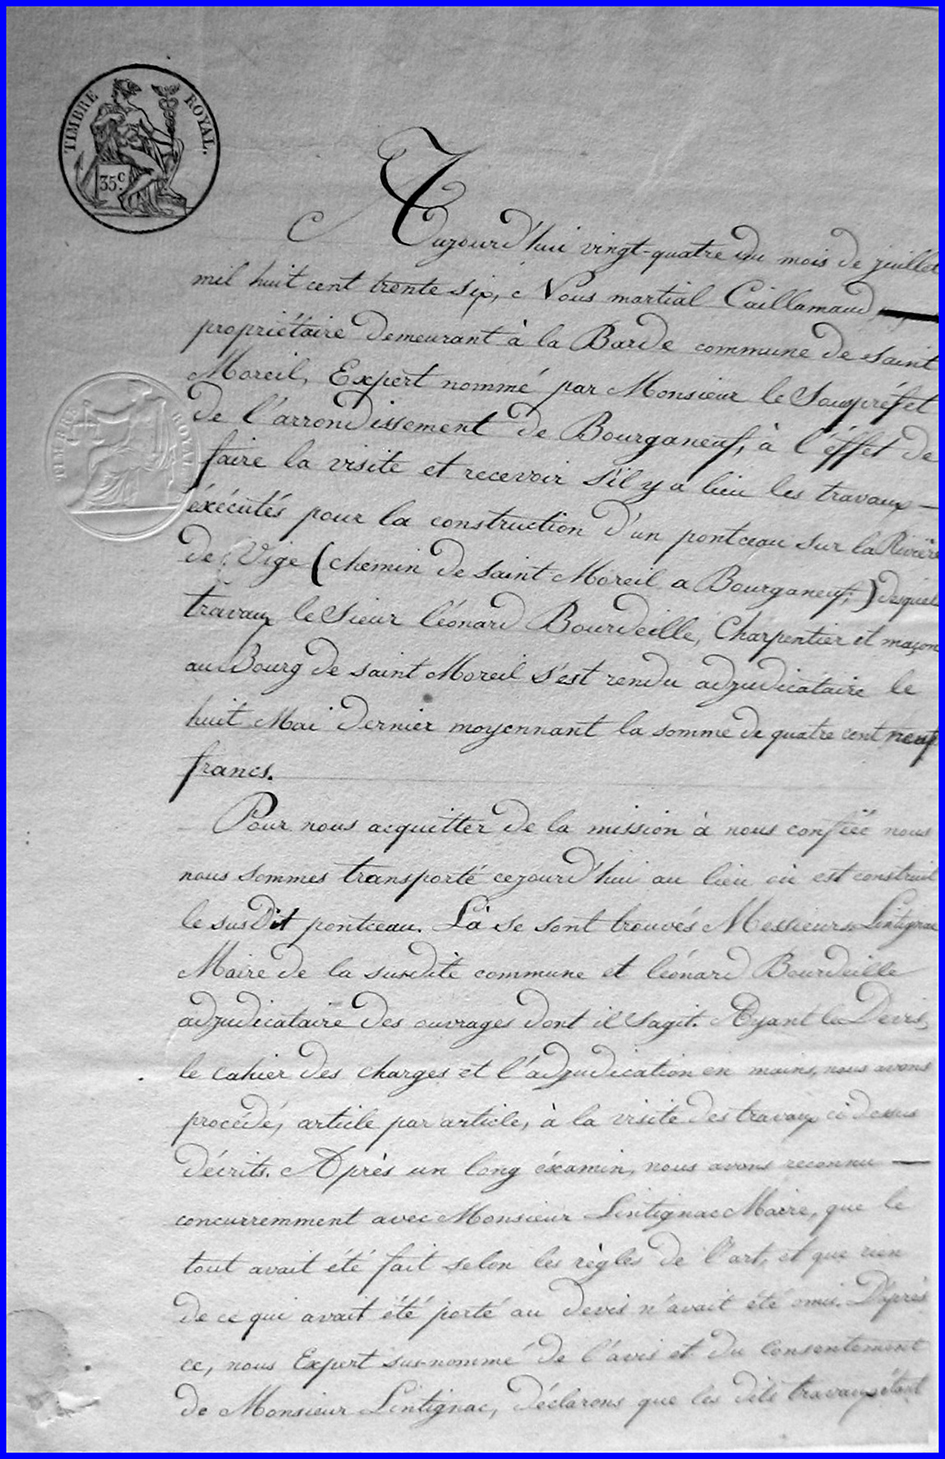 TIMBRE ROYAL.
35c.
Aujourd'hui vingt-quatre du mois de juillet
mil huit cent trente six, Nous martial Caillamaud
propriétaire demeurant à la Barde commune de Saint
Moreil, Expert nommé par Monsieur le Souspréfet
TIMBRE ROYAL
de l'arrondissement de Bourganeuf, à l'éffet de
faire la visite et recevoir s'il y a lieu les travaux —
éxécutés pour la construction d'un pontceau sur la Rivière
de Vige (chemin de Saint Moreil a Bourganeuf;) desquels
travaux le Sieur léonard Bourdeille, Charpentier et maçon
au Bourg de saint Moreil s'est rendu adjudicataire le
huit Mai dernier moyennant la somme de quatre cent neuf
francs.
Pour nous acquitter de la mission à nous confiée nous
nous sommes transporté cejourd'hui au lieu où est construit
le susdit pontceau. Là se sont trouvés Messieurs Lintignac
Maire de la susdite commune et léonard Bourdeille
adjudicataire des ouvrages dont il sagit. Ayant le Devis,
le cahier des charges et l'adjudication en mains, nous avons
procédé, article par article, à la visite des travaux ci dessus
décrits. Après un long éxamin, nous avons reconnu —
concurremment avec Monsieur Lintignac Maire, que le
tout avait été fait selon les règles de l'art, et que rien
de ce qui avait été porté au devis n'avait été omis. D'après
ce, nous Expert sus-nommé de l'avis et du consentement
de Monsieur Lintignac, déclarons que les dits travaux étant